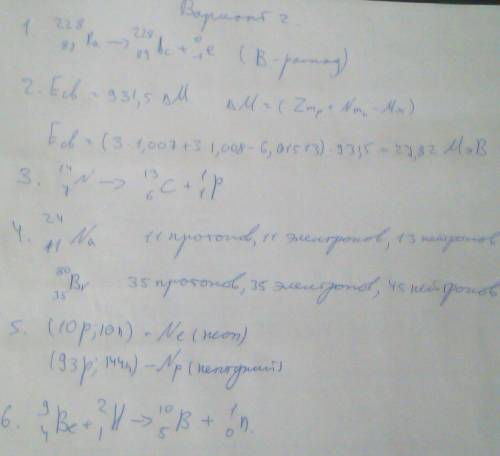 Вариант 2.
1. ²²⁸₈₈Ra → ²²⁸₈₉Ac + ⁰₋₁e (B-распад)
2. Eсв = 931,5 ΔM ΔM = (Zmp + Nmn - Mя)
Eсв = (3·1,007+3·1,008-6,01513)·931,5 = 27,82 МэВ
3. ¹⁴₇N → ¹³₆C + ¹₁p
4. ²⁴₁₁Na 11 протонов, 11 электронов, 13 нейтронов
⁸⁰₃₅Br 35 протонов, 35 электронов, 45 нейтронов
5. (10p; 10n) - Ne (неон)
(93p; 144n) - Np (нептуний)
6. ⁹₄Be + ²₁H → ¹⁰₅B + ¹₀n.